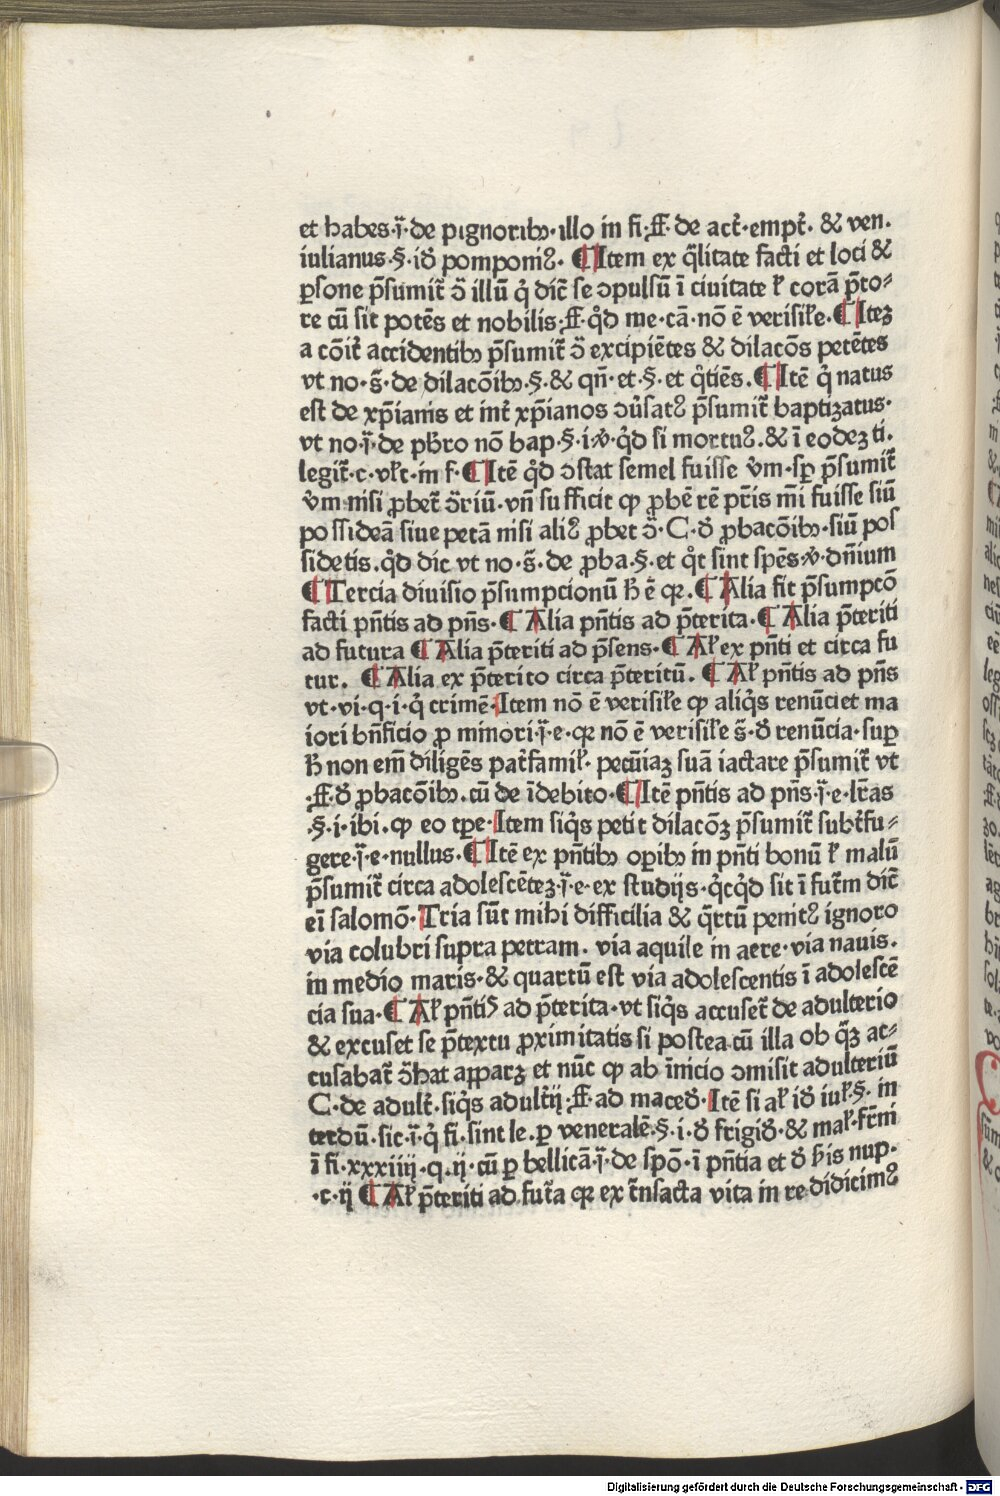 et habes·i̅·de pignoribꝫ·illo in fi·ff·de act̛·empt̛·&ven.
iulianus·§·id̛ pomponiꝰ· ¶Item ex q̅litate facti et loci &
ꝑsone p̅sumit̛ ↄ̅ illū q̛ dic̅ se ↄpulsū ī ciuitate ł corā p̅to⸗
re cū sit potēs et nobilis·ff·q̛d me·cā·nō ē verisiłe·¶Iteꝫ
a cōit̛ accidentibꝫ p̅sumit̛ ↄ̅ excipiētes & dilacōs petētes
vt no·s̅·de dilacōibꝫ·§·& qn̅·et·§·et q̛tiēs·¶Itē q̛ natus
est de xp̅ianis et int̛ xp̅ianos ↄưsatꝰ p̅sumit̛ baptizatus·
vt no·i̅·de pb̅ro nō bap·§·i·v̛·q̛d si mortuꝰ·& ī eodeꝫ ti.
legit̛·c·vłt·in f·¶Itē q̛d ↄstat semel fuisse v̛m·sꝑ p̅sumit̛
v̛m nisi ꝓbet̛ ↄ̅riū·vn̅ sufficit ꝙ ꝓbē rē pr̅is m̅i fuisse siū
possideā siue petā nisi aliꝰ ꝓbet ↄ̅·C·d̛ ꝓbacōibꝫ·siū pos
sidetis.q̛d dic vt no·s̅·de ꝓba·§·et q̛t sint spēs·v̛·dn̅ium
¶Tercia diuisio p̅sumpcionū h̅ ē qꝛ·¶Alia fit p̅sumpcō
facti pn̅tis ad pn̅s·¶Alia pn̅tis ad p̅terita·¶Alia p̅teriti
ad futura ¶Alia p̅teriti ad p̅sens·¶Ał ex pn̅ti et circa fu
tur. ¶Alia ex p̅terito circa p̅teritū. ¶Ał pn̅tis ad pn̅s
vt·vi·q·i·q̛ crimē·Item nō ē verisiłe ꝙ aliq̛s renūciet ma
iori bn̅ficio ꝓ minori·i̅·e·qꝛ nō ē verisiłe s̅·d̛ renūcia·suꝑ
h̅ non em̅ diligēs pat̛famił·pecūiaꝫ suā iactare p̅sumit̛ vt
·ff·d̛ ꝓbacōibꝫ·cū de īdebito·¶Itē pn̅tis ad pn̅s·i̅·e·lr̅as
·§·i·ibi·ꝙ eo tꝑe·Item siq̛s petit dilacōꝫ p̅sumit̛ subt̛fu⸗
gere·i̅·e·nullus·¶Itē ex pn̅tibꝫ oꝑibꝫ in pn̅ti bonū ł malū
p̅sumit̛ circa adolescēteꝫ·i̅·e·ex studijs·q̛cq̛d sit ī fut̛m dic̅
eī salomō·Tria sūt mihi difficilia & q̅rtū penitꝰ ignoro
via colubri supra petram. via aquile in aere·via nauis.
in medio maris·& quartū est via adolescentis ī adolescē
cia sua·¶Ał pn̅tiꝰ ad p̅terita·vt siq̛s accuset̛ de adulterio
& excuset se p̅textu ꝓximitatis si postea cū illa ob q̅ꝫ ac⸗
cusabat̛ ↄ̅hat apparꝫ et nūc ꝙ ab inicio ↄmisit adulteriū
C·de adult̛·siq̛s adult̛ij·ff·ad maced̛·Itē si ał id̛ iuł·§·in
terdū·sic·i̅·q̛ fi·sint le·ꝑ venerałē·§·i·d̛ frigid̛·& mał·fr̅ni
ī fi·xxxiiij·q·ij·cū ꝑ bellicā·i̅·de spō·ī pn̅tia et d̛ h̅is nup·
·c·ij ¶Ał p̅teriti ad fut̛a qꝛ ex t̅nsacta vita in re didicimꝰ
Digitalisierung gefördert durch die Deutsche Forschungsgemeinschaft - DFG